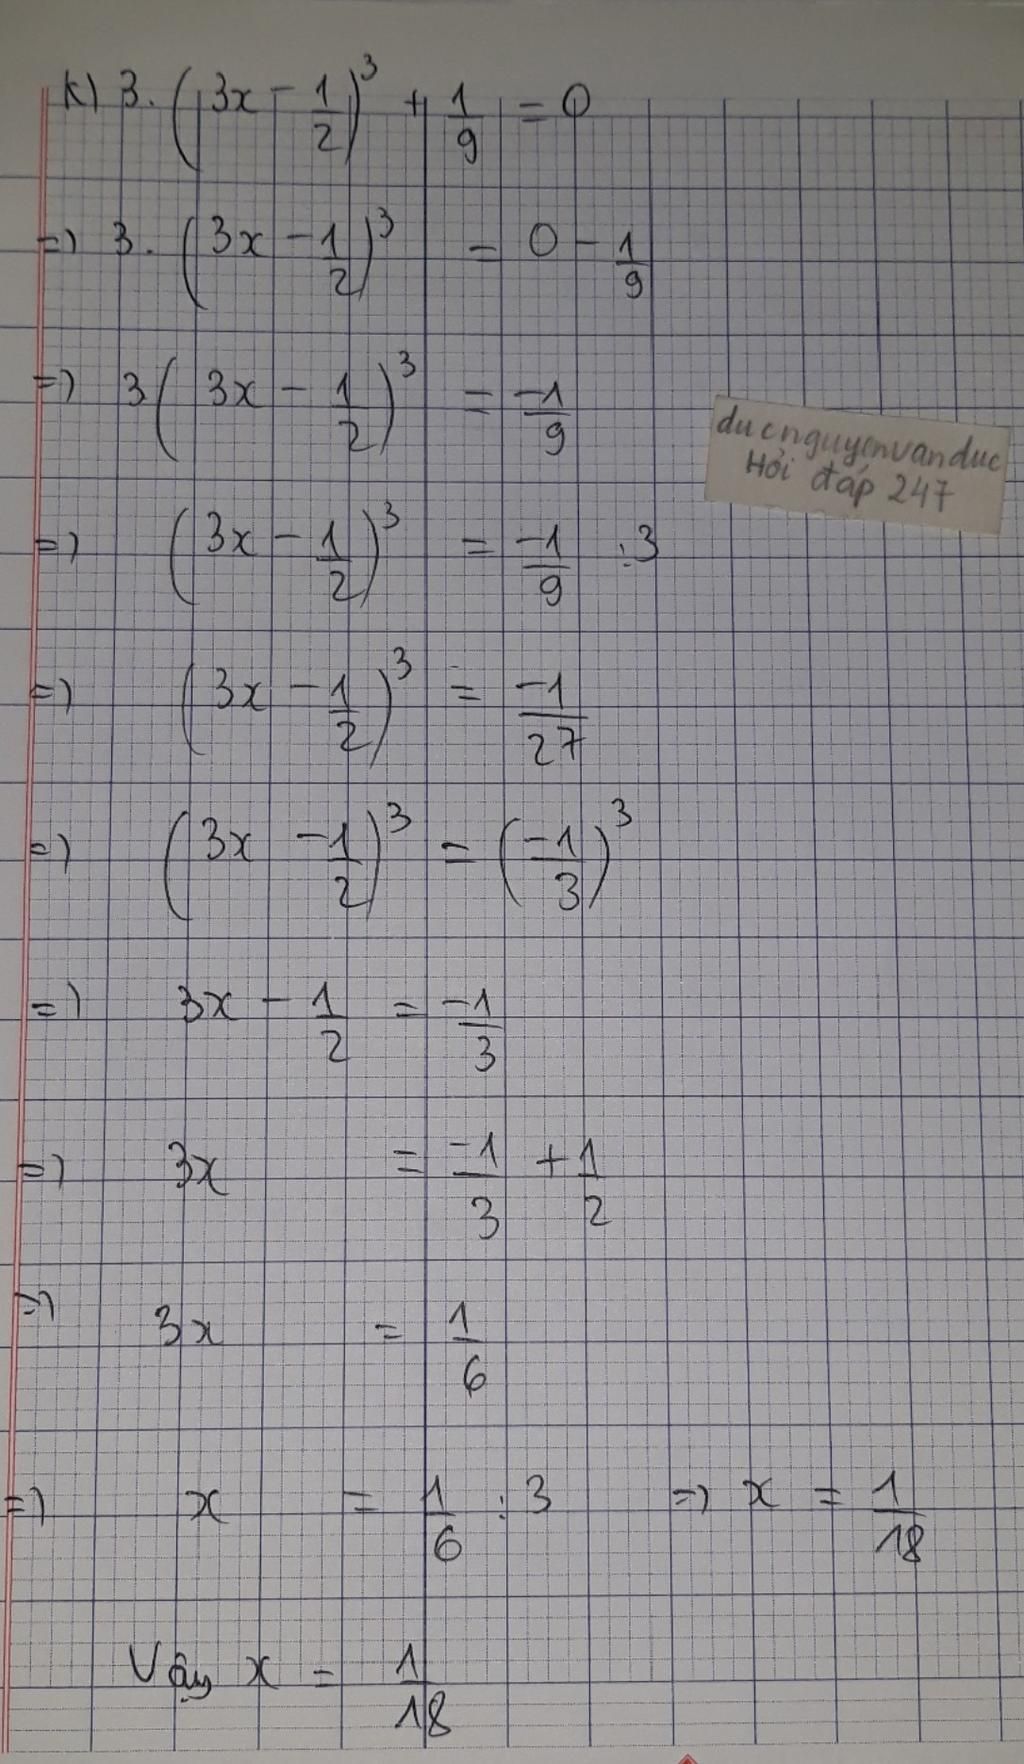 k) 3. (3x - 1/2)³ + 1/9 = 0
=) 3. (3x - 1/2)³ = 0 - 1/9
=) 3 (3x - 1/2)³ = -1/9
ducnguyenvanduc
Hỏi đáp 247
=) (3x - 1/2)³ = -1/9 : 3
=) (3x - 1/2)³ = -1/27
=) (3x - 1/2)³ = (-1/3)³
=) 3x - 1/2 = -1/3
=) 3x = -1/3 + 1/2
=) 3x = 1/6
=) x = 1/6 : 3 =) x = 1/18
Vậy x = 1/18